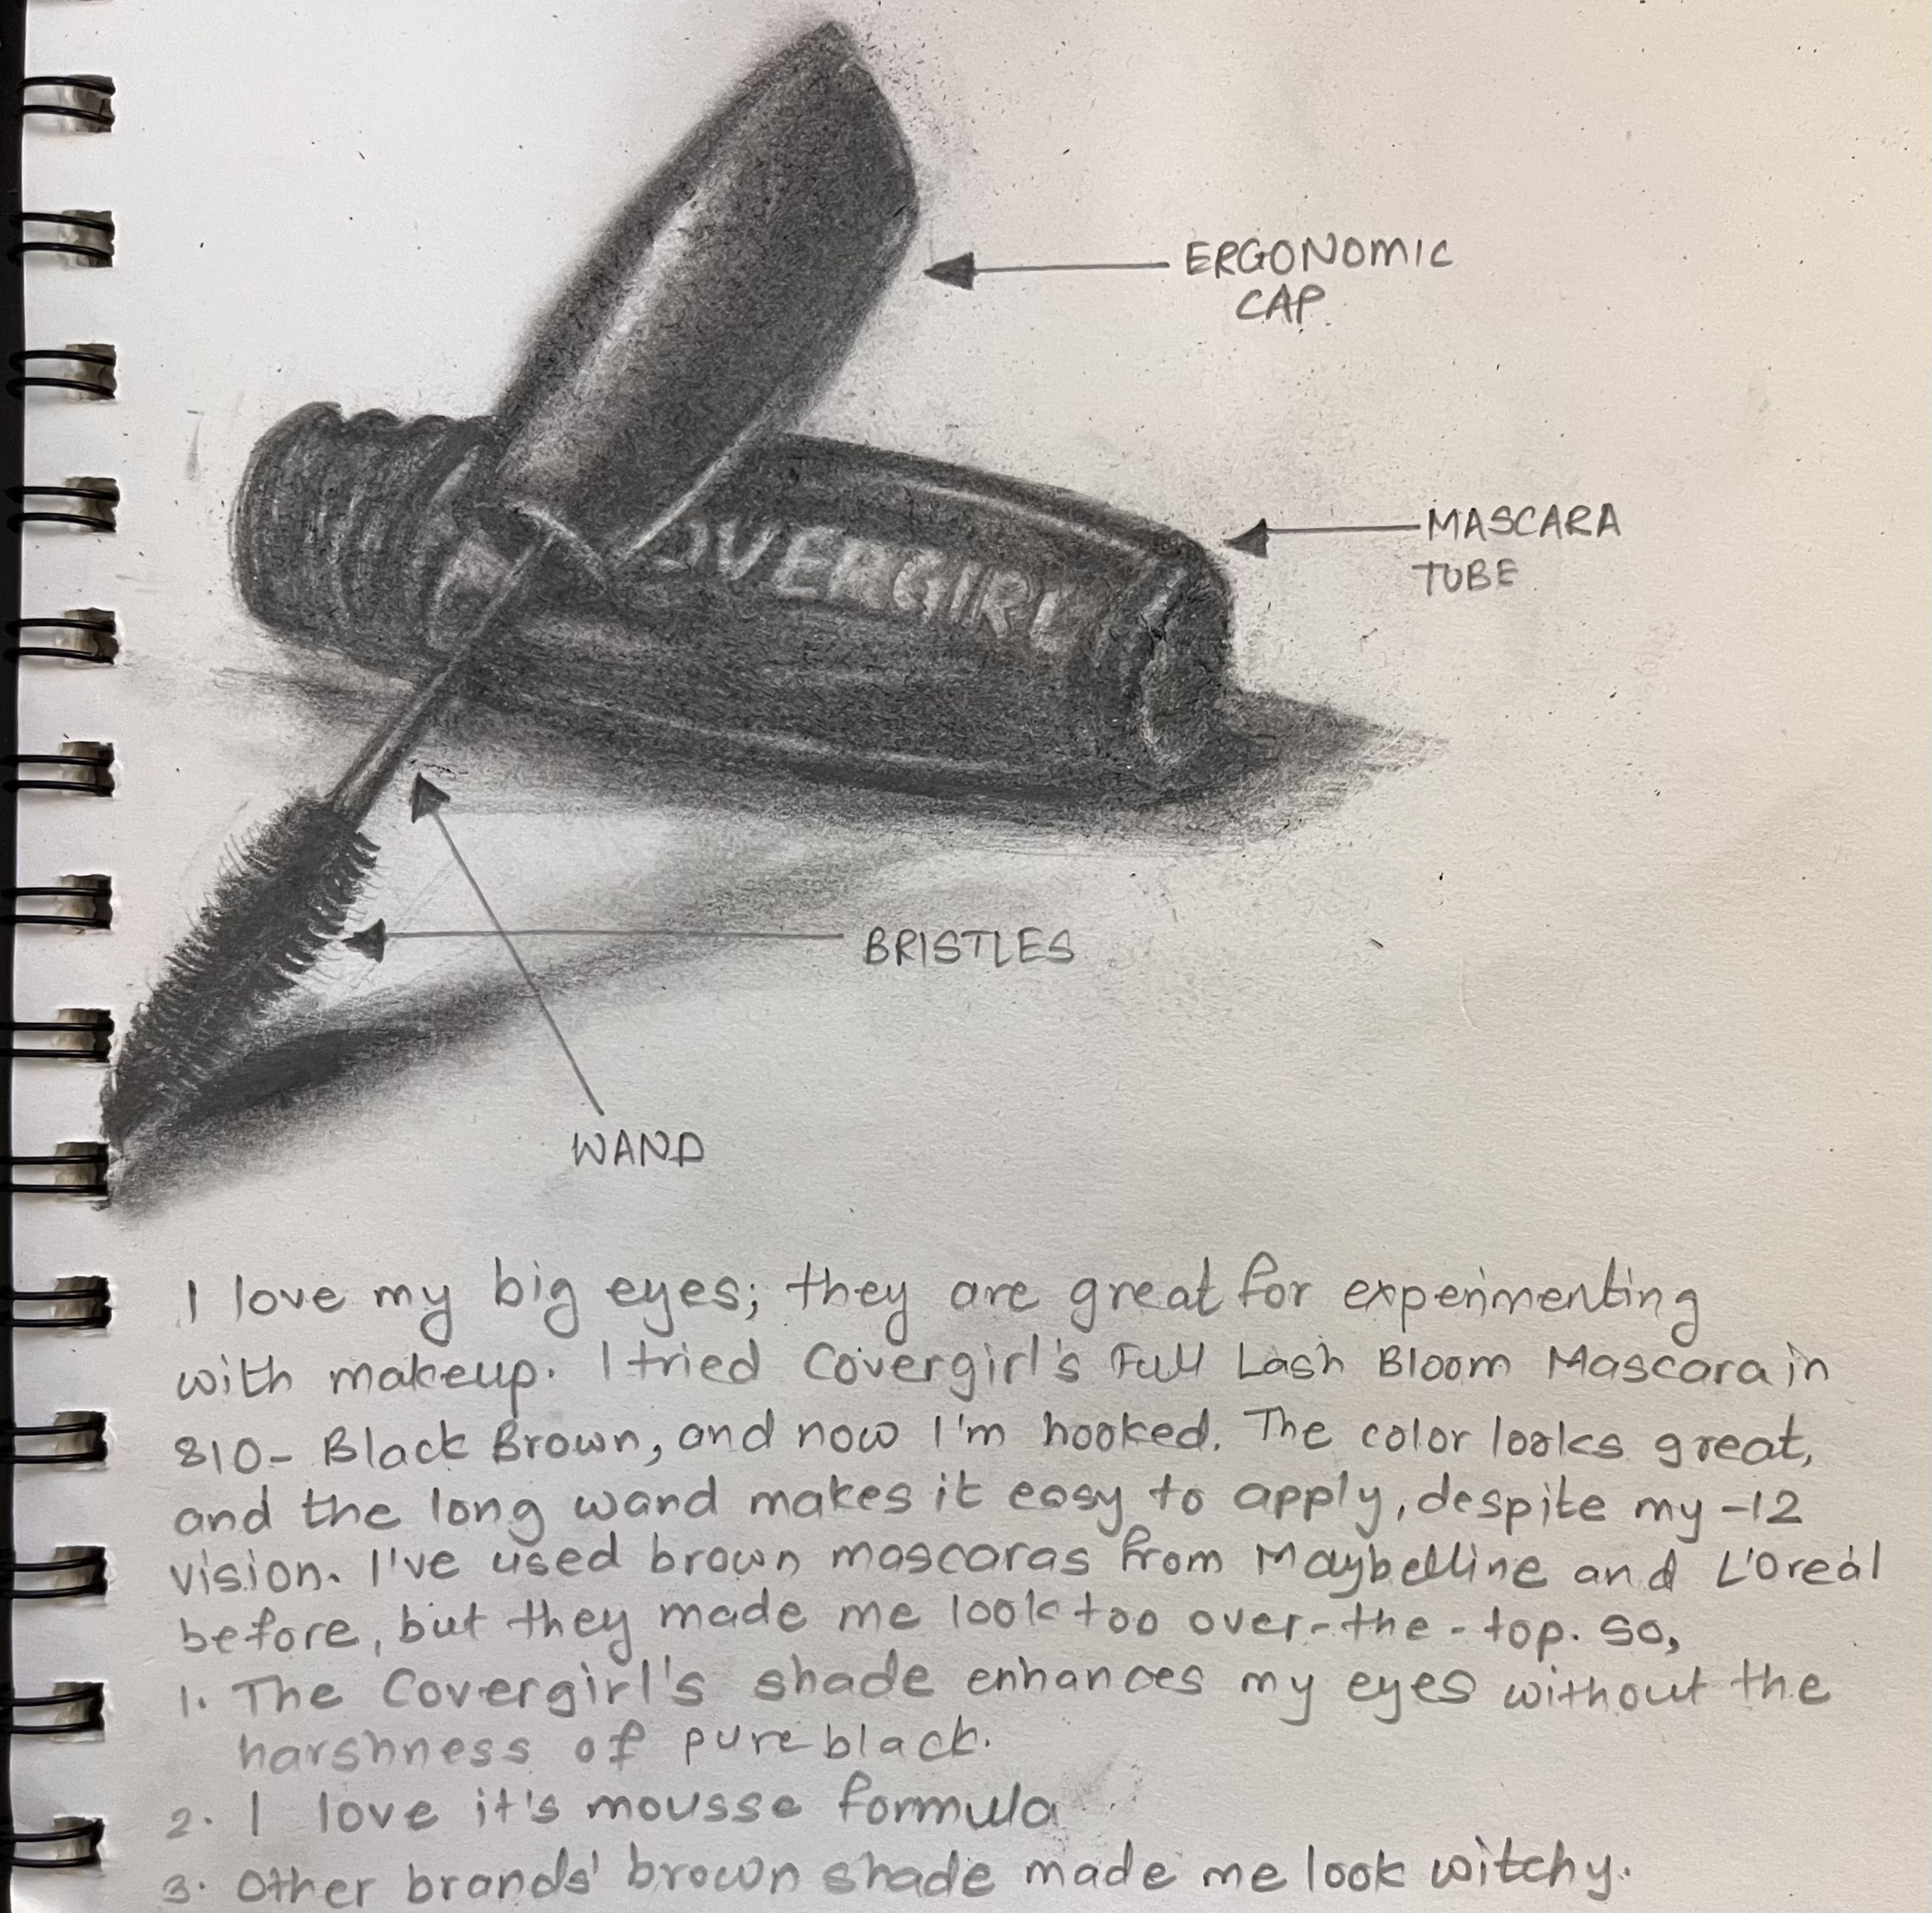 ERGONOMIC
CAP
OVERGIRL
MASCARA
TUBE
BRISTLES
WAND
I love my big eyes; they are great for experimenting
with makeup. I tried Covergirl's Full Lash Bloom Mascara in
810- Black Brown, and now I'm hooked. The color looks great,
and the long wand makes it easy to apply, despite my -12
vision. I've used brown mascaras from Maybelline and L'Oreál
before, but they made me look too over-the-top. So,
1. The Covergirl's shade enhances my eyes without the
harshness of pure black.
2. I love it's mousse formula
3. Other brands' brown shade made me look witchy.